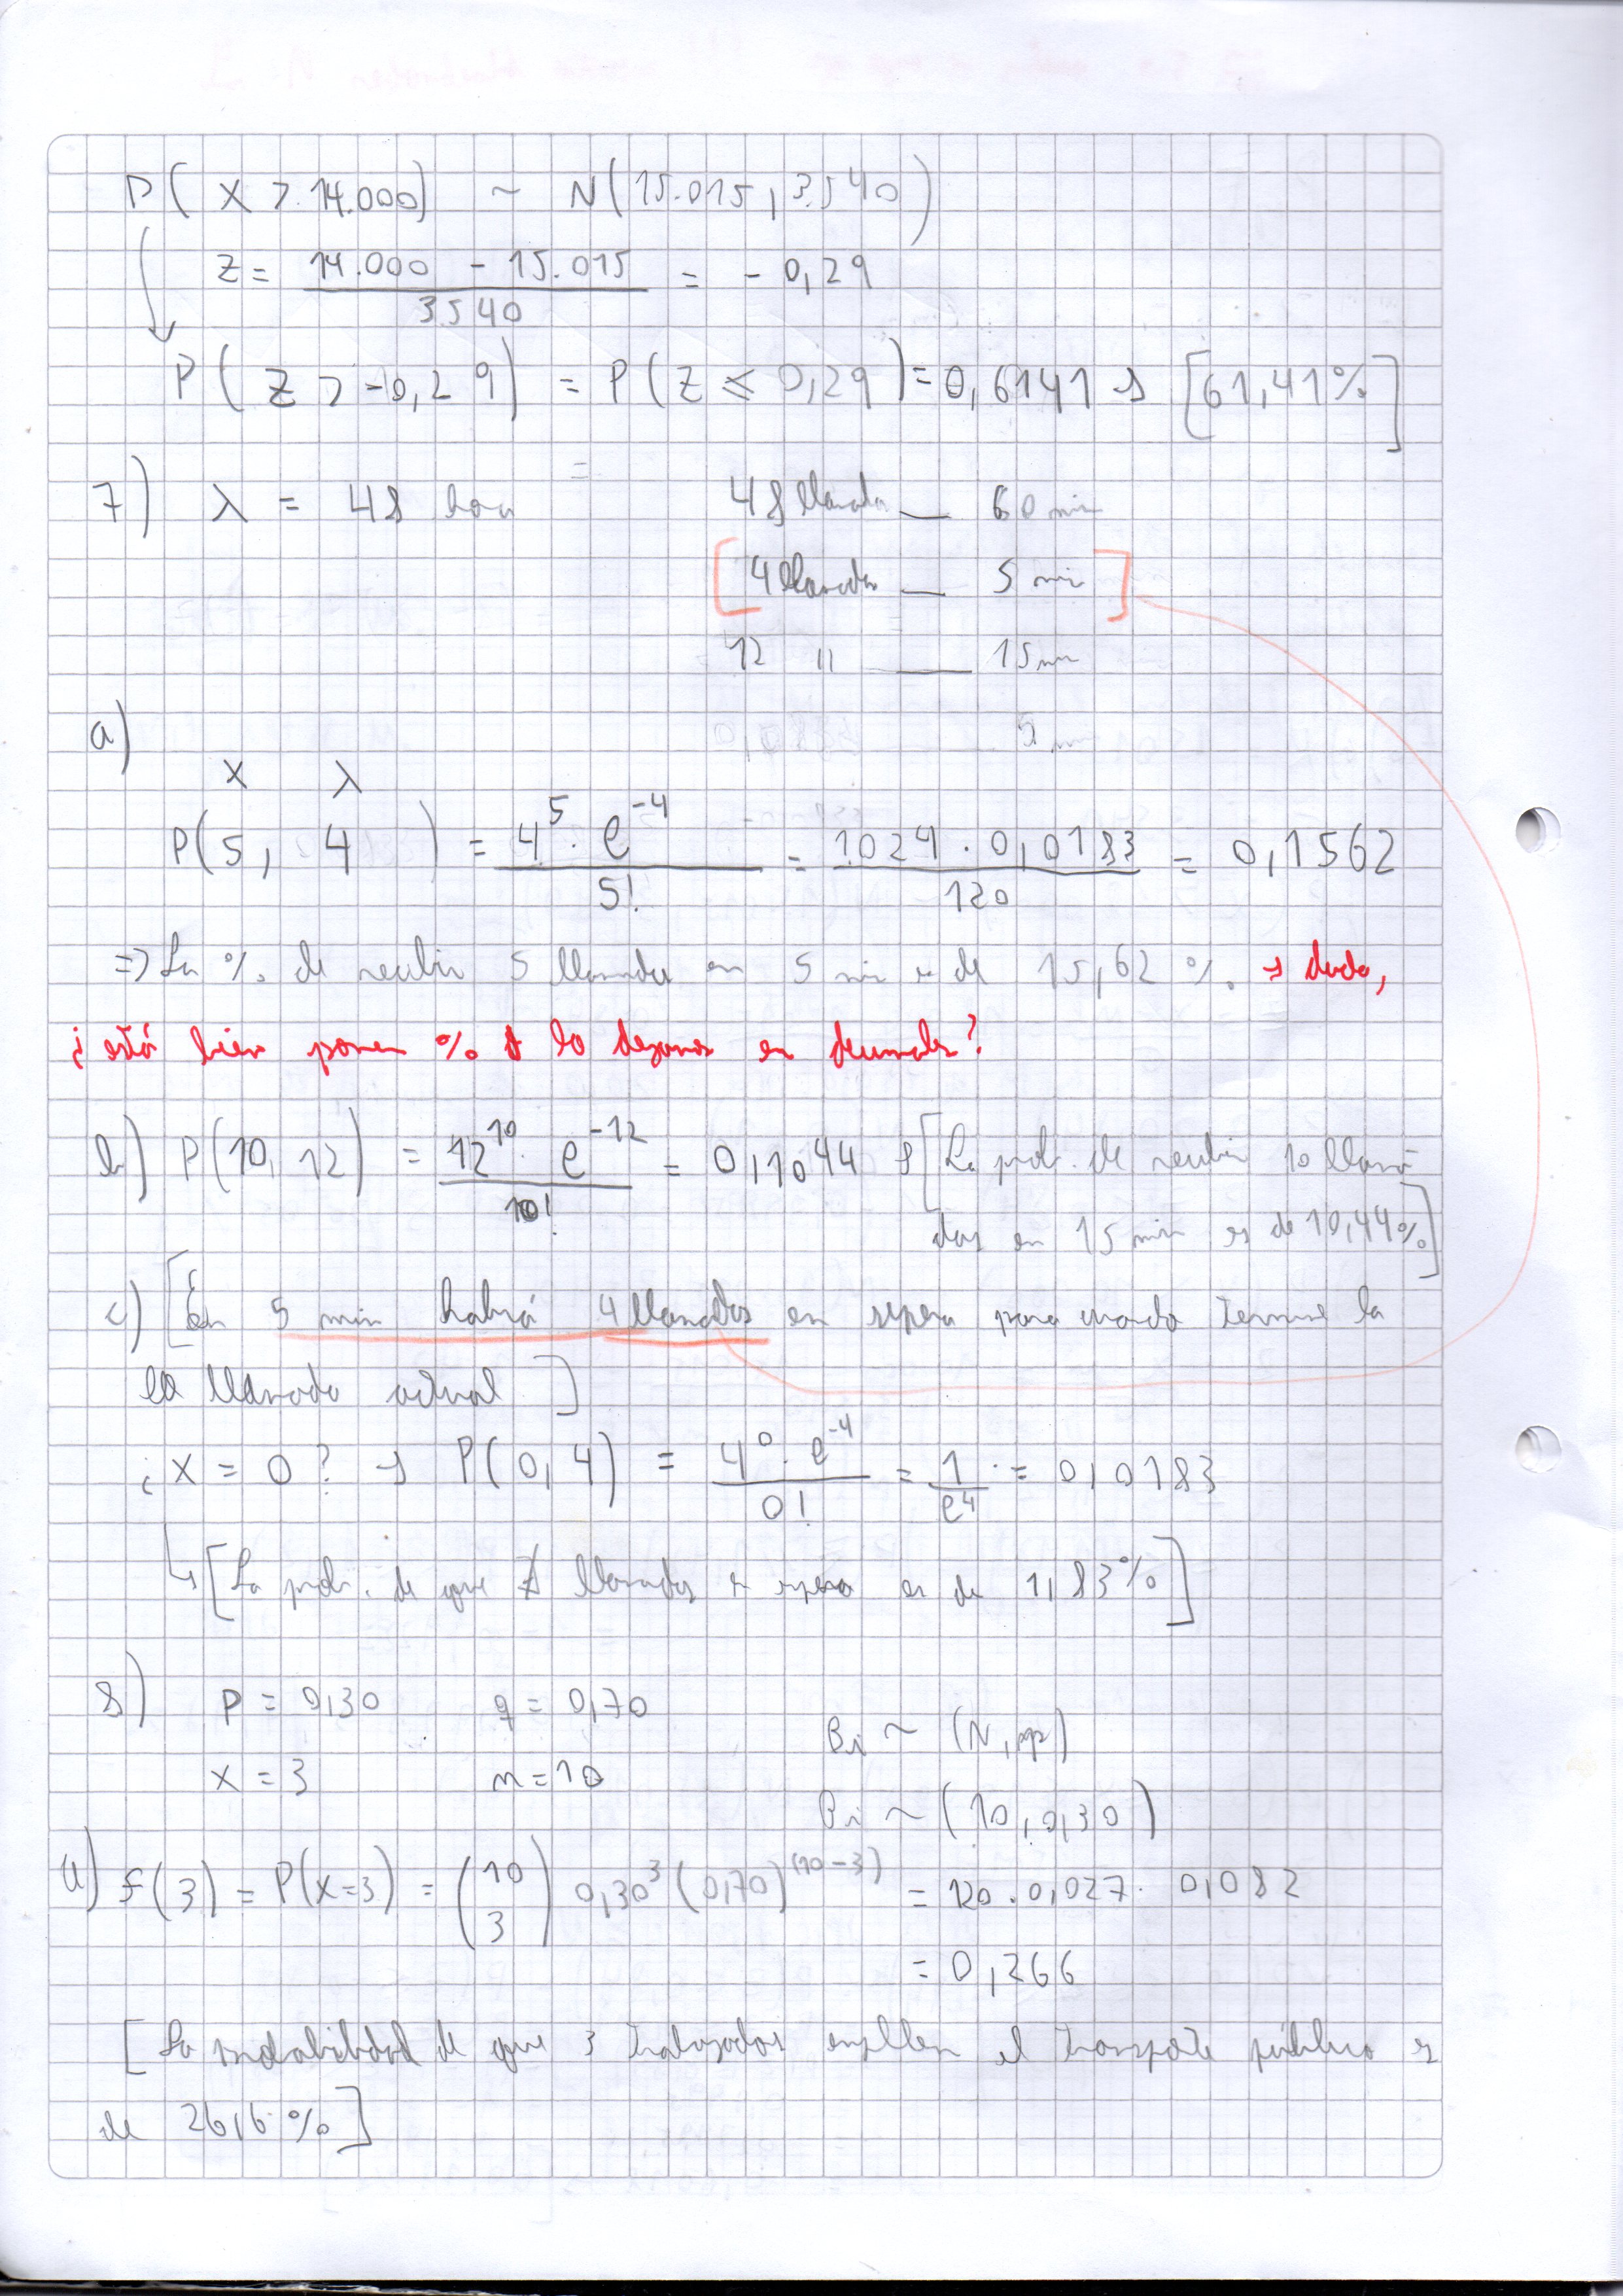 P( X > 14.000) ~ N(15.015, 3.540)
z = 14.000 - 15.015 / 3540 = - 0,29
P( Z > -0,29) = P(Z ≤ 0,29) = 0,6141 → [61,41%]
7) λ = 48 hora 48 llamadas — 60 min
[4 llamadas — 5 min]
12 " — 15 min
a)
X λ
P(5, 4) = 4^5 · e^-4 / 5! = 1024 · 0,0183 / 120 = 0,1562
=> La % de recibir 5 llamadas en 5 min es de 15,62 %. → duda,
¿está bien poner % o lo dejamos en decimales?
b) P(10, 12) = 12^10 · e^-12 / 10! = 0,1044 → [La prob. de recibir 10 llama
das en 15 min es de 10,44%]
c) [En 5 min habrá 4 llamadas en espera para cuando termine la
la llamada actual]
¿X = 0? → P(0,4) = 4^0 · e^-4 / 0! = 1 / e^4 = 0,0183
↳ [La prob. de que ∄ llamadas en espera es de 1,83%]
8) p = 0,30 q = 0,70
Bi ~ (N, p)
x = 3 n = 10
Bi ~ (10, 0,30)
a) f(3) = P(x=3) = (10 3) 0,30^3 (0,70)^(10-3) = 120 · 0,027 · 0,082
= 0,266
[La probabilidad de que 3 trabajadores empleen el transporte público es
de 26,6 %]